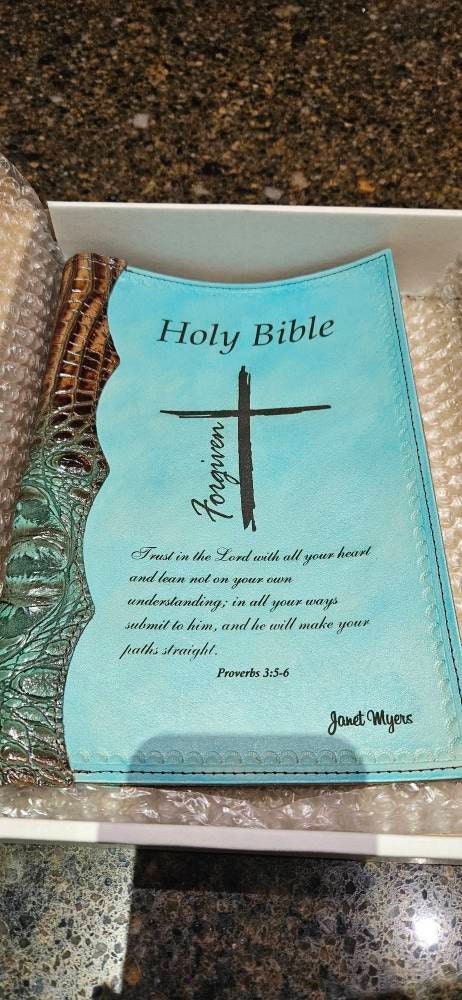 Holy Bible
Forgiven
Trust in the Lord with all your heart
and lean not on your own
understanding; in all your ways
submit to him, and he will make your
paths straight.
Proverbs 3:5-6
Janet Myers